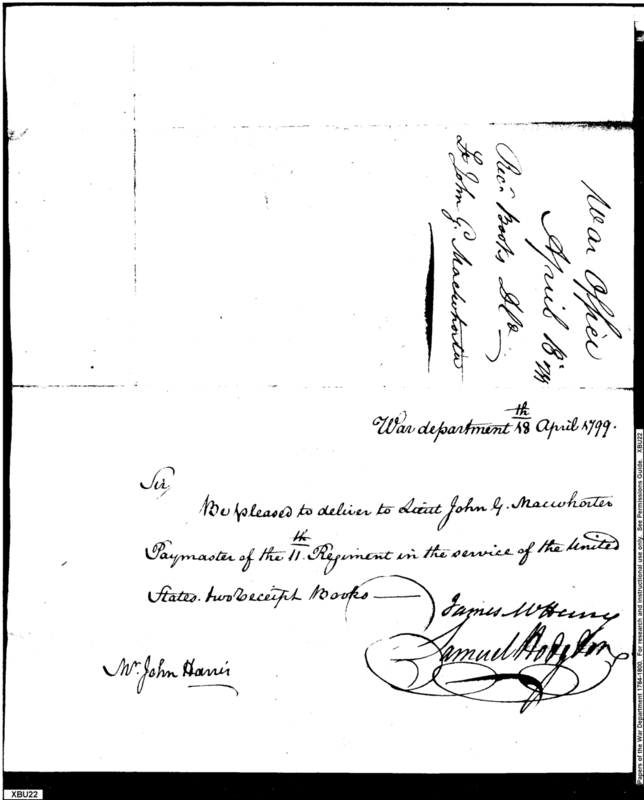 War Office
April 18th 99
Rec. Books Dld
Lt John G. Macwhorter
War department 18th April 1799.
Sir,
Be pleased to deliver to Lieut John G. Macwhorter
Paymaster of the 11th Regiment in the service of the United
States. two Receipt Books
James McHenry
Samuel Hodgdon
Mr John Harris
XBU22
Papers of the War Department 1784-1800. For research and instructional use only. See Permissions Guide. XBU22